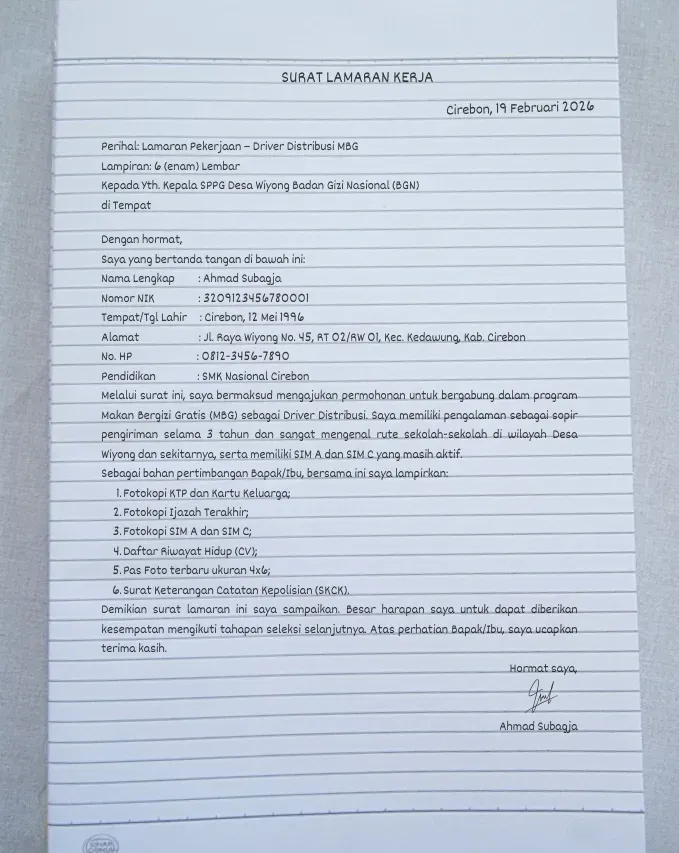 SURAT LAMARAN KERJA
Cirebon, 19 Februari 2026
Perihal: Lamaran Pekerjaan – Driver Distribusi MBG
Lampiran: 6 (enam) Lembar
Kepada Yth. Kepala SPPG Desa Wiyong Badan Gizi Nasional (BGN)
di Tempat
Dengan hormat,
Saya yang bertanda tangan di bawah ini:
Nama Lengkap : Ahmad Subagja
Nomor NIK : 3209123456780001
Tempat/Tgl Lahir : Cirebon, 12 Mei 1996
Alamat : Jl. Raya Wiyong No. 45, RT 02/RW 01, Kec. Kedawung, Kab. Cirebon
No. HP : 0812-3456-7890
Pendidikan : SMK Nasional Cirebon
Melalui surat ini, saya bermaksud mengajukan permohonan untuk bergabung dalam program
Makan Bergizi Gratis (MBG) sebagai Driver Distribusi. Saya memiliki pengalaman sebagai sopir
pengiriman selama 3 tahun dan sangat mengenal rute sekolah-sekolah di wilayah Desa
Wiyong dan sekitarnya, serta memiliki SIM A dan SIM C yang masih aktif.
Sebagai bahan pertimbangan Bapak/Ibu, bersama ini saya lampirkan:
1. Fotokopi KTP dan Kartu Keluarga;
2. Fotokopi Ijazah Terakhir;
3. Fotokopi SIM A dan SIM C;
4. Daftar Riwayat Hidup (CV);
5. Pas Foto terbaru ukuran 4x6;
6. Surat Keterangan Catatan Kepolisian (SKCK).
Demikian surat lamaran ini saya sampaikan. Besar harapan saya untuk dapat diberikan
kesempatan mengikuti tahapan seleksi selanjutnya. Atas perhatian Bapak/Ibu, saya ucapkan
terima kasih.
Hormat saya,
Ahmad Subagja